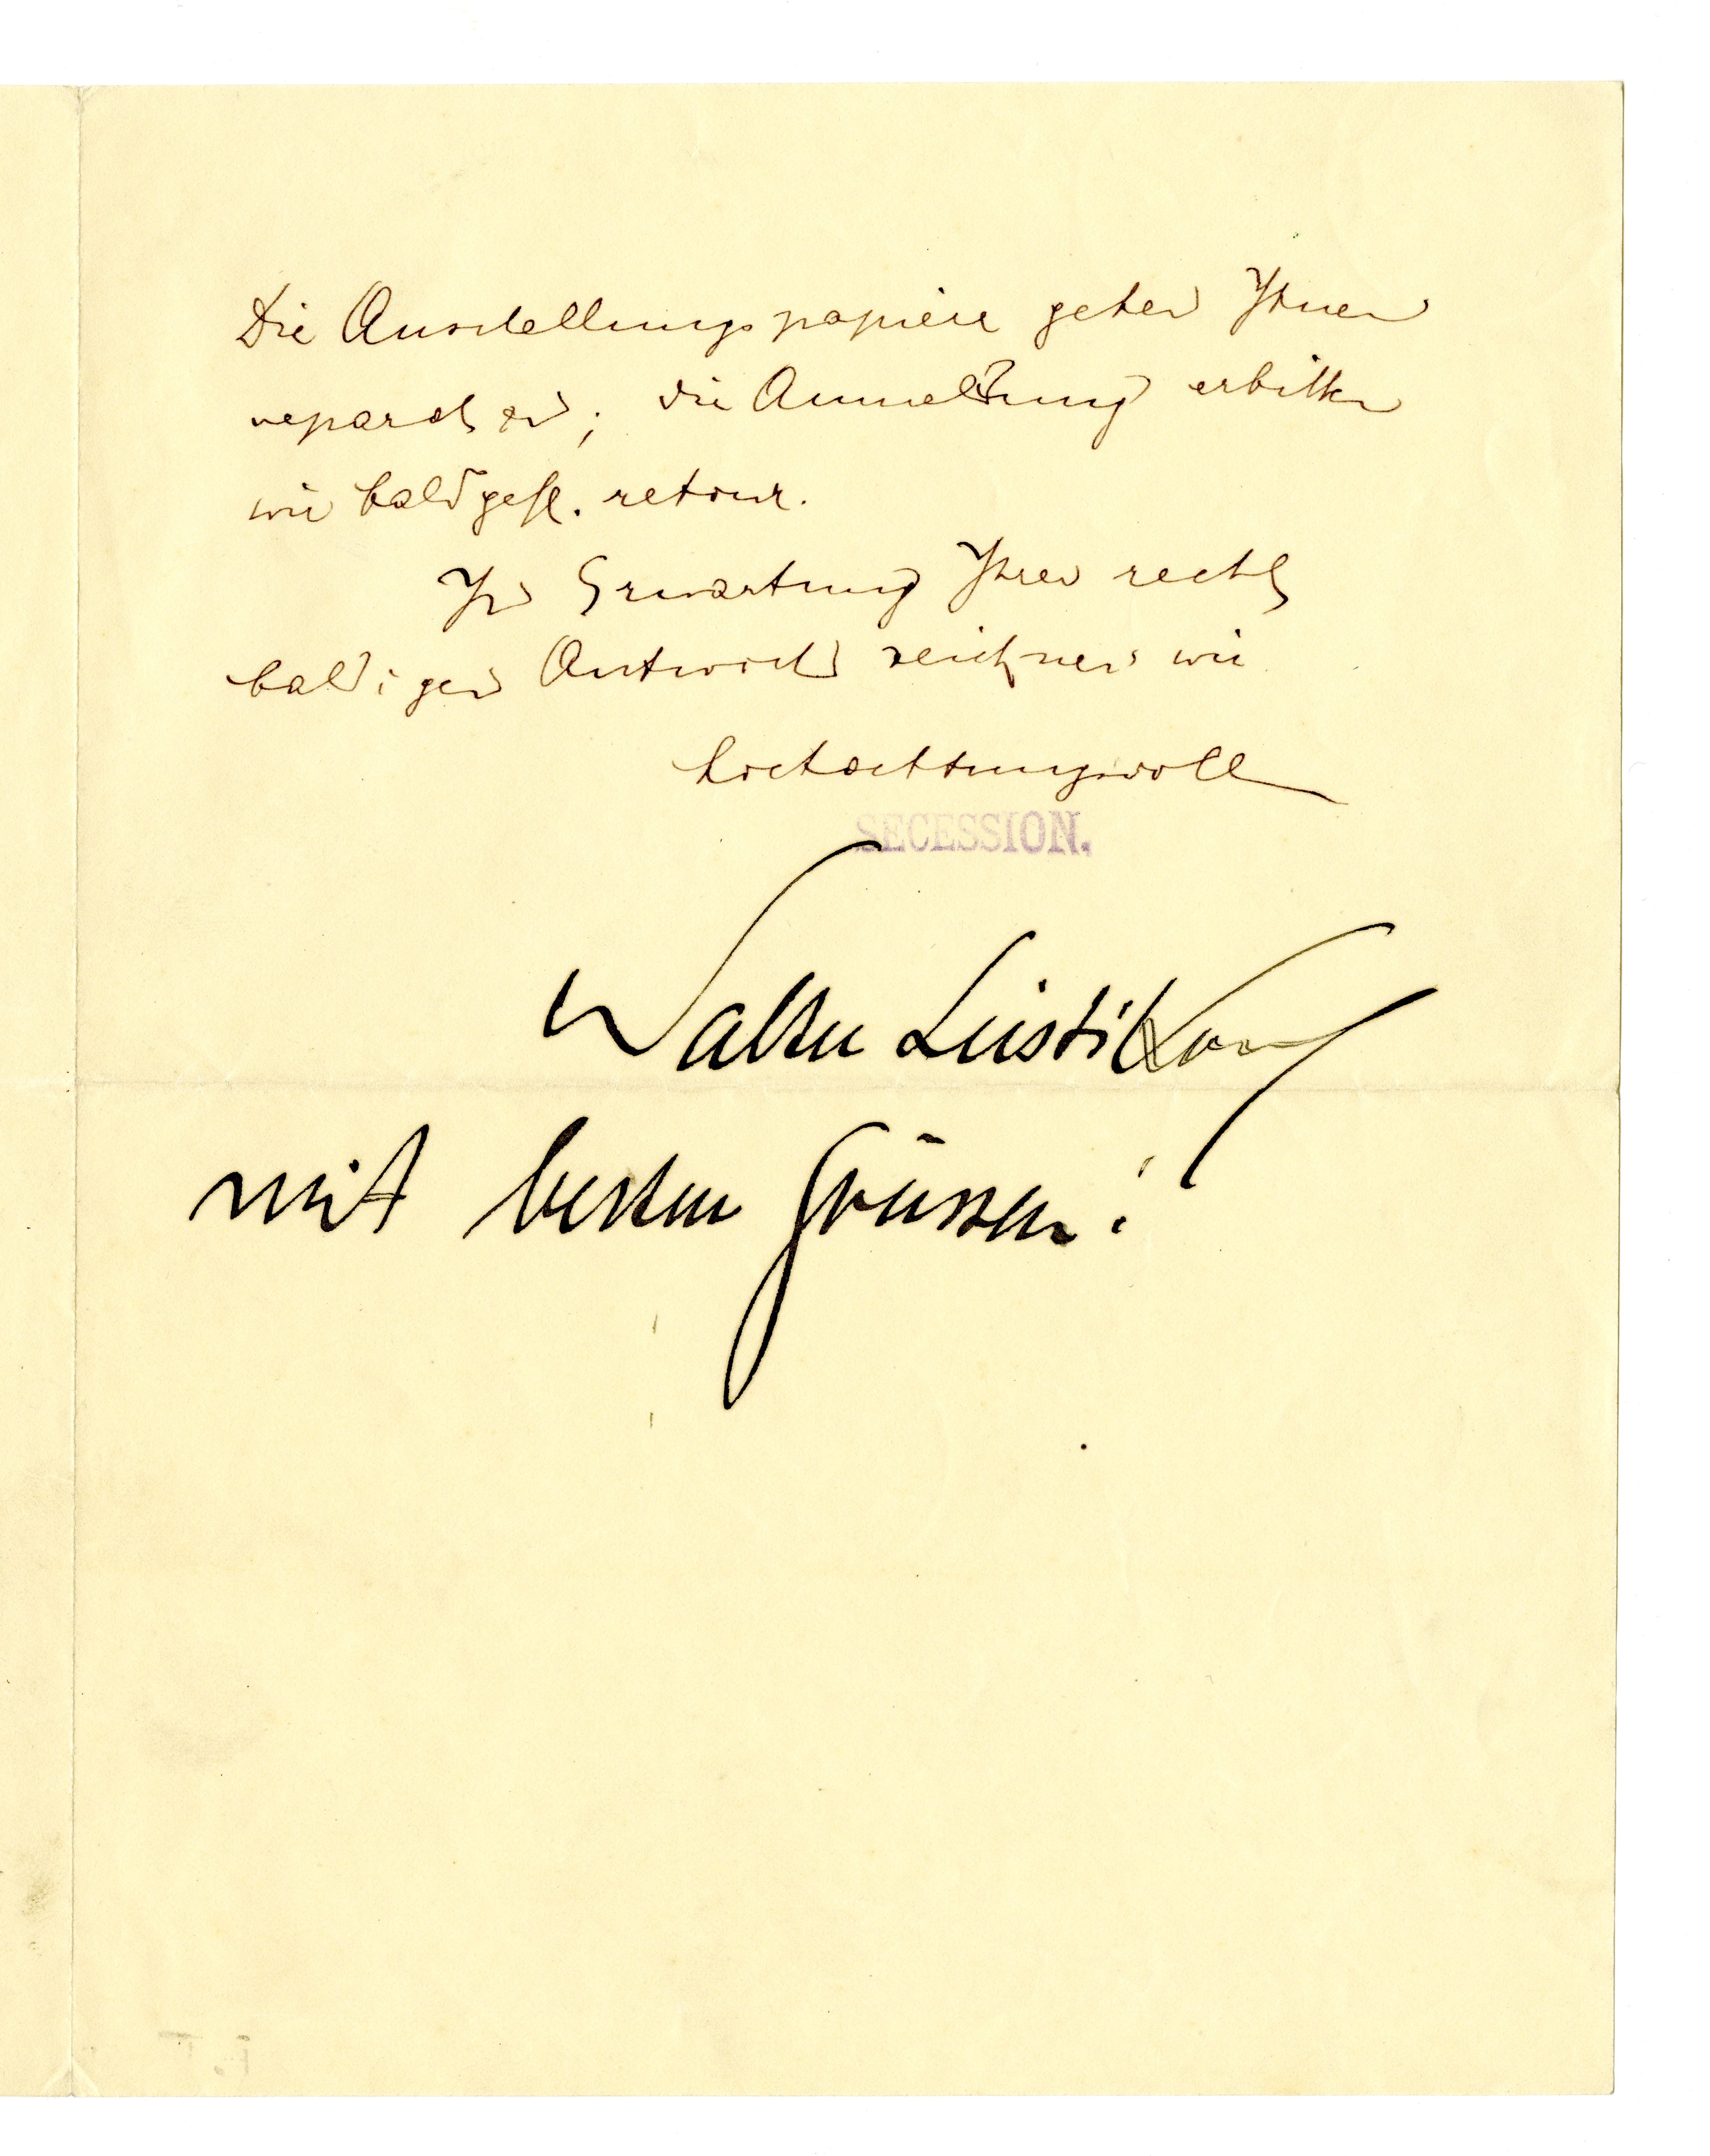 Die Ausstellungspapiere gehen Ihnen
separat zu; die Anmeldung erbitten
wir bald gefl. retour.
In Erwartung Ihrer recht
baldigen Antwort zeichnen wir
hochachtungsvoll
SECESSION.
Walter Leistikow
mit besten Grüssen!